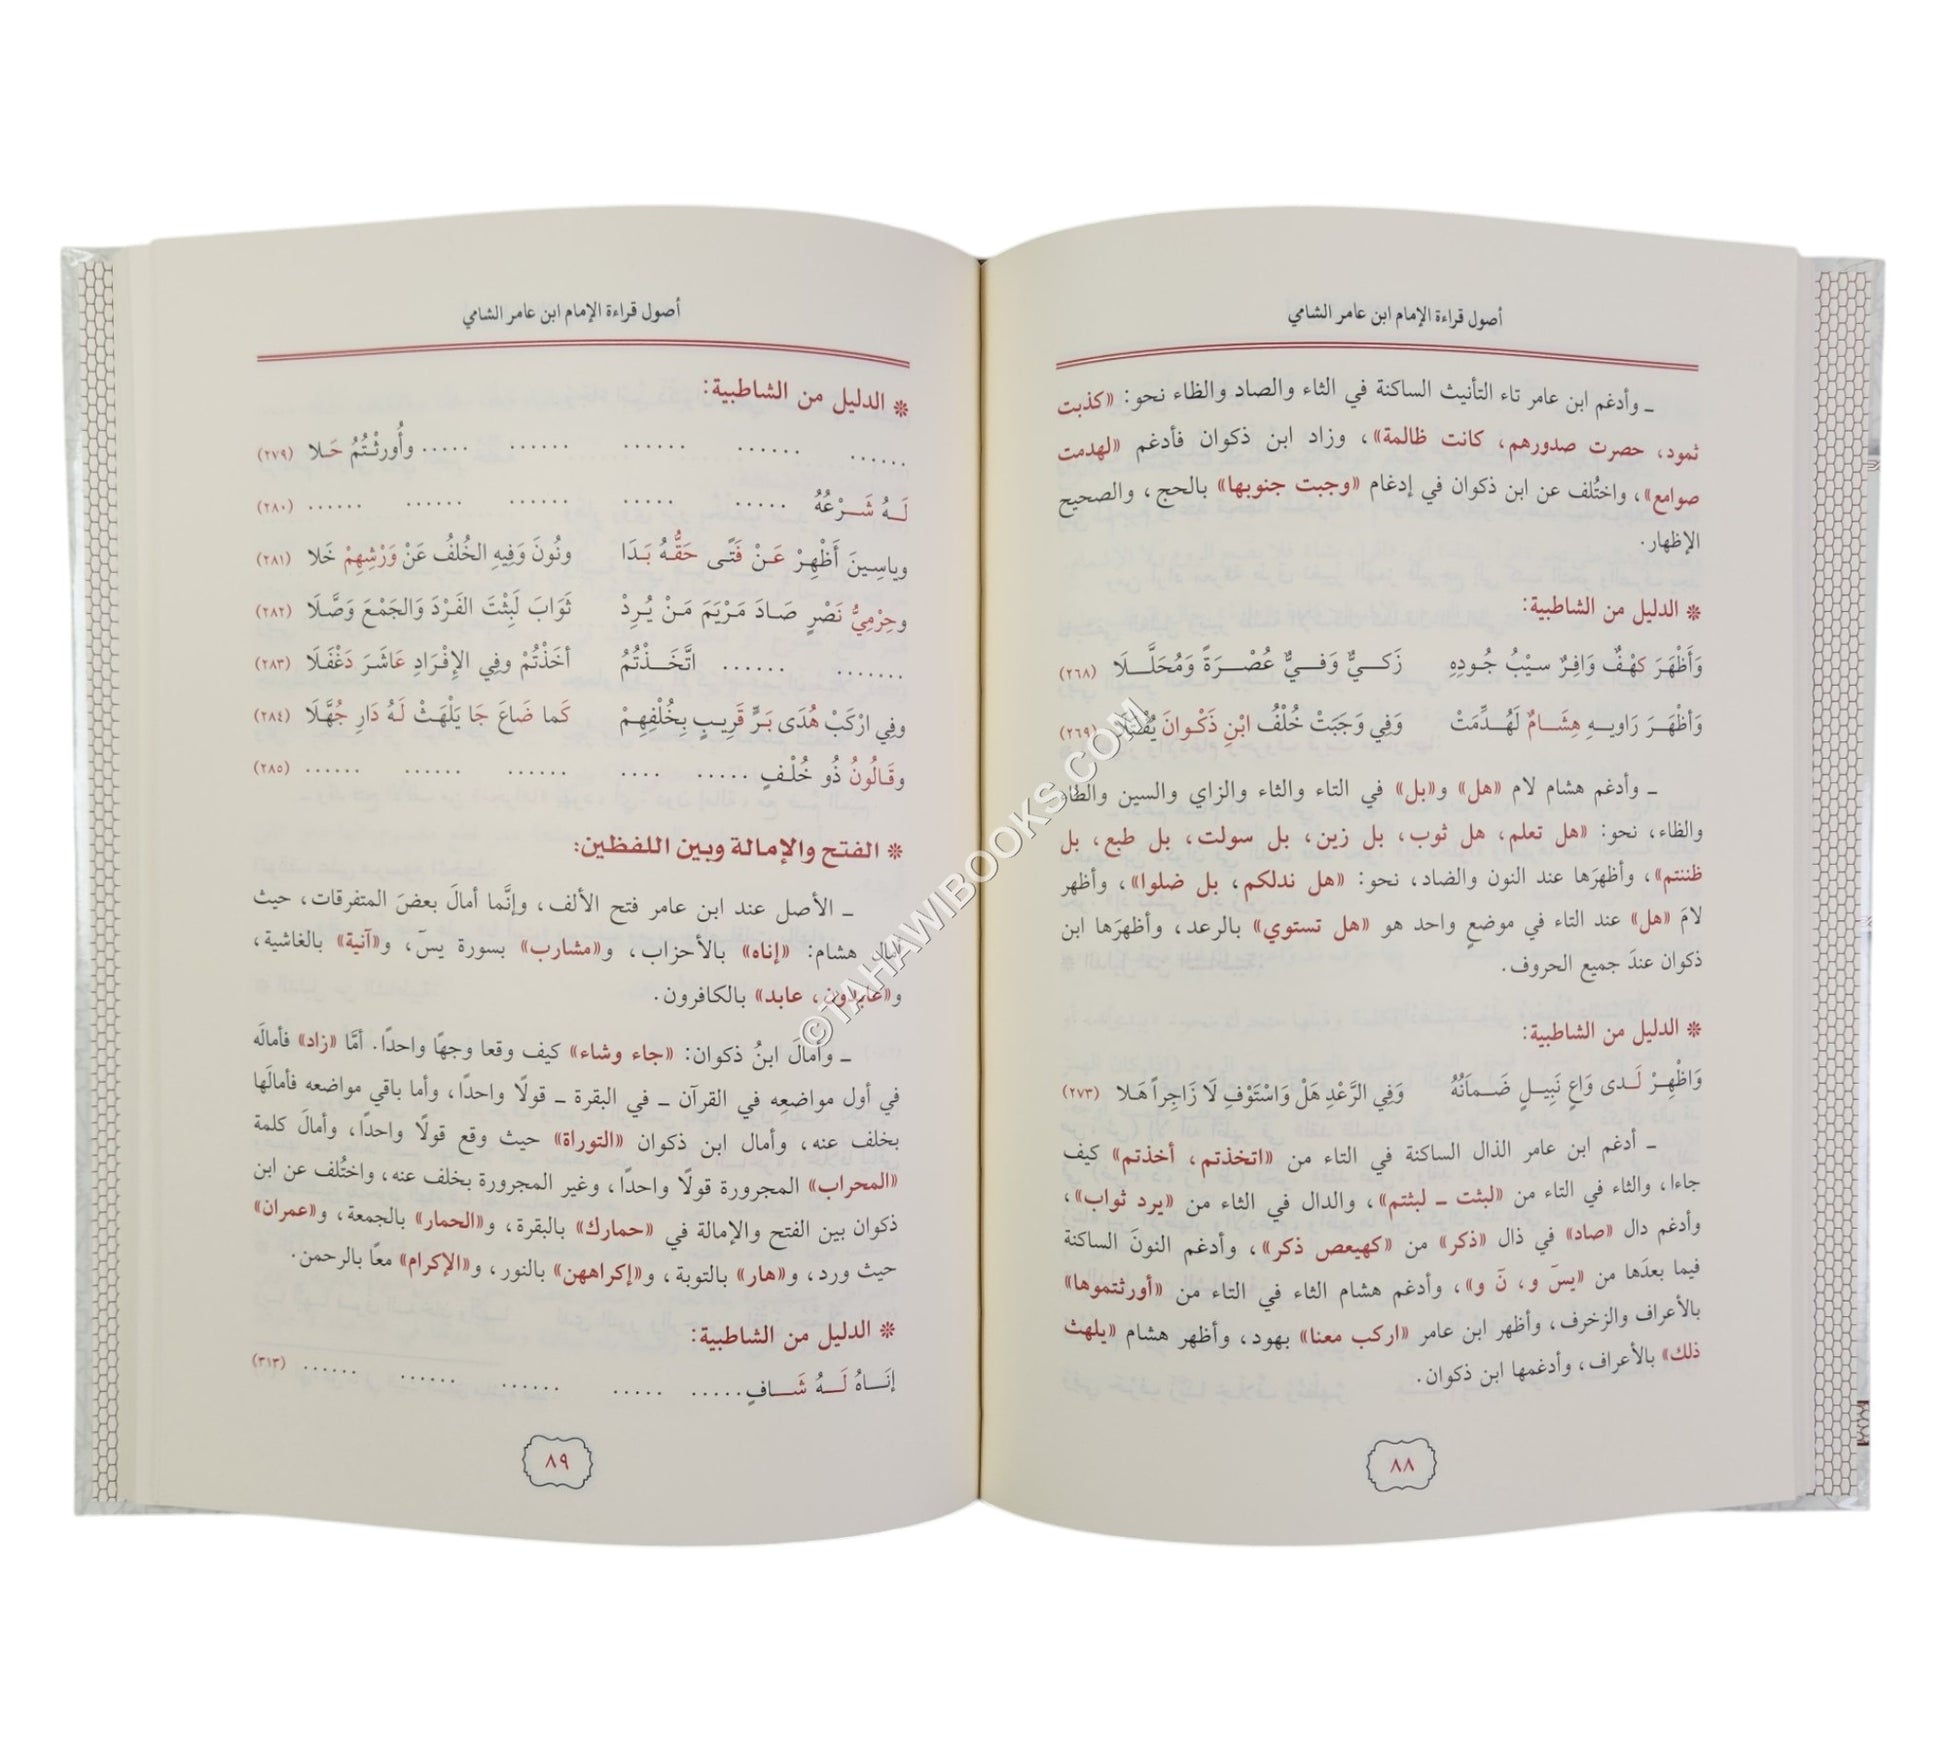 أصول قراءة الإمام ابن عامر الشامي
ـ وأدغم ابن عامر تاء التأنيث الساكنة في الثاء والصاد والظاء نحو: «كذبت
ثمود، حصرت صدورهم، كانت ظالمة»، وزاد ابن ذكوان فأدغم «لهدمت
صوامع»، واختُلف عن ابن ذكوان في إدغام «وجبت جنوبها» بالحج، والصحيح
الإظهار.
❋ الدليل من الشاطبية:
وَأَظْهَرَ كَهْفٌ وَافِرٌ سيْبُ جُـودِهِ زَكـيٌّ وَفـيٌّ عُصْـرَةً وَمُحَلَّـلَا (٢٦٨)
وَأظْهَـرَ رَاويـهِ هِشَـامٌ لَهُـدِّمَتْ وَفِي وَجَبَتْ خُلْفُ ابْنِ ذَكْـوانَ يُفْتَلَا (٢٦٩)
ـ وأدغم هشام لام «هل» و«بل» في التاء والثاء والزاي والسين والطاء
والظاء، نحو: «هل تعلم، هل ثوب، بل زين، بل سولت، بل طبع، بل
ظننتم»، وأظهرَها عند النون والضاد، نحو: «هل ندلكم، بل ضلوا»، وأظهر
لامَ «هل» عند التاء في موضعٍ واحد هو «هل تستوي» بالرعد، وأظهرَها ابن
ذكوان عندَ جميع الحروف.
❋ الدليل من الشاطبية:
وَاظْهِـرْ لَـدى وَاعٍ نَبِيـلٍ ضَـمَانُهُ وَفِي الرَّعْدِ هَلْ وَاسْتَوْفِ لَا زَاجِراً هَـلا (٢٧٣)
ـ أدغم ابن عامر الذال الساكنة في التاء من «اتخذتم، أخذتم» كيف
جاءا، والثاء في التاء من «لبثت ـ لبثتم»، والدال في الثاء من «يرد ثواب»،
وأدغم دال «صاد» في ذال «ذكر» من «كهيعص ذكر»، وأدغم النونَ الساكنة
فيما بعدَها من «يسٓ و، نٓ و»، وأدغم هشام الثاء في التاء من «أورثتموها»
بالأعراف والزخرف، وأظهر ابن عامر «اركب معنا» بهود، وأظهر هشام «يلهث
ذلك» بالأعراف، وأدغمها ابن ذكوان.
٨٨
أصول قراءة الإمام ابن عامر الشامي
❋ الدليل من الشاطبية:
...... ...... ...... ...... ..... وأُورِثْـتُمُ حَـلا (٢٧٩)
لَـهُ شَـرْعُهُ ..... ..... ...... ...... ...... (٢٨٠)
وياسِينَ أَظْهِرْ عَـنْ فَتًـى حَقُّـهُ بَـدَا ونُونَ وَفِيهِ الخُلفُ عَنْ وَرْشِهِمْ خَلا (٢٨١)
وحِرْمِيُّ نَصْرٍ صَـادَ مَـرْيَمَ مَـنْ يُـرِدْ ثَوَابَ لَبِثْتَ الفَرْدَ وَالجَمْعَ وَصَّلَا (٢٨٢)
....... ...... اتَّخَـذْتُمُ أخَذْتُمْ وفِي الإفْرَادِ عَاشَرَ دَغْفَلَا (٢٨٣)
وفِي ارْكَبْ هُدَى بَـرٍّ قَرِيـبٍ بِخُلْفِهِـمْ كَما ضَاعَ جَا يَلْهَثْ لَـهُ دَارِ جُهَّـلَا (٢٨٤)
وقَـالُونُ ذُو خُلْـفٍ ..... .... ...... ...... ...... (٢٨٥)
❋ الفتح والإمالة وبين اللفظين:
ـ الأصل عند ابن عامر فتح الألف، وإنَّما أمالَ بعضَ المتفرقات، حيث
أمال هشام: «إناه» بالأحزاب، و«مشارب» بسورة يسٓ، و«آنية» بالغاشية،
و«عابدون، عابد» بالكافرون.
ـ وأمالَ ابنُ ذكوان: «جاء وشاء» كيف وقعا وجهًا واحدًا. أمَّا «زاد» فأمالَه
في أول مواضعِه في القرآن ـ في البقرة ـ قولًا واحدًا، وأما باقي مواضعه فأمالَها
بخلف عنه، وأمال ابن ذكوان «التوراة» حيث وقع قولًا واحدًا، وأمالَ كلمة
«المحراب» المجرورة قولًا واحدًا، وغير المجرورة بخلف عنه، واختُلف عن ابن
ذكوان بين الفتح والإمالة في «حمارك» بالبقرة، و«الحمار» بالجمعة، و«عمران»
حيث ورد، و«هار» بالتوبة، و«إكراههن» بالنور، و«الإكرام» معًا بالرحمن.
❋ الدليل من الشاطبية:
إنَـاهُ لَـهُ شَـافٍ ..... ..... ...... ...... ...... (٣١٣)
٨٩
©TAHAWIBOOKS.COM